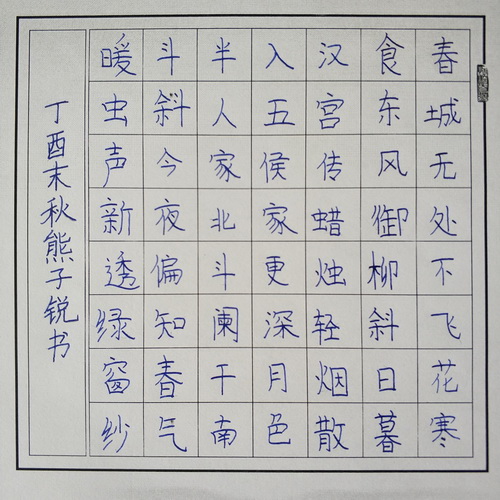 春城无处不飞花寒
食东风御柳斜日暮
汉宫传蜡烛轻烟散
入五侯家更深月色
半人家北斗阑干南
斗斜今夜偏知春气
暖虫声新透绿窗纱
丁酉末秋熊子锐书